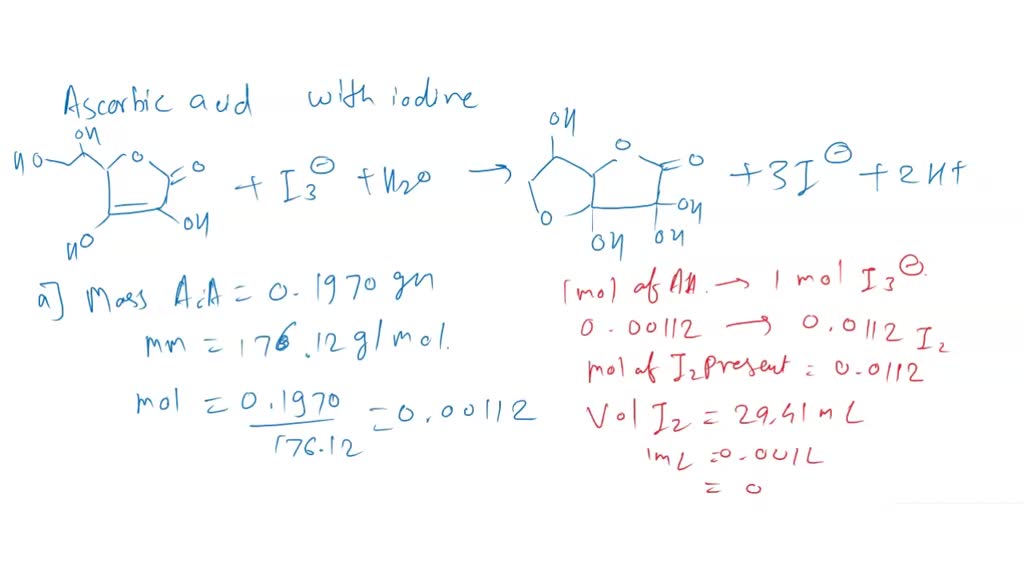 Ascorbic acid with iodine
HO OH O O OH HO + I3⊖ + H2O → OH O O O OH OH OH + 3I⊖ + 2H+
a] Mass A.A = 0.1970 gm
mm = 176.12 g/mol.
mol = 0.1970 / 176.12 = 0.00112
1 mol of AA. → 1 mol I3⊖.
0.00112 → 0.0112 I2
mol of I2 present = 0.0112
Vol I2 = 29.41 mL
1mL = 0.001L
= 0